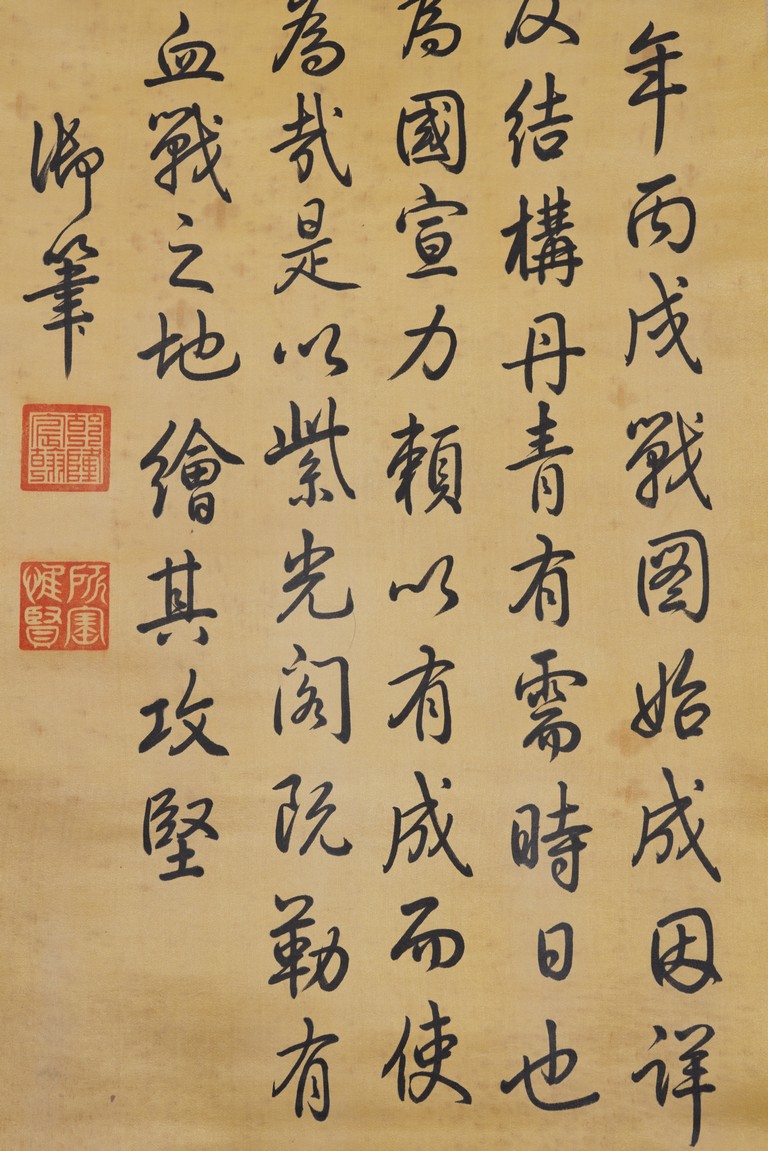 年丙戌戰图始成因詳
及結構丹青有需時日也
為國宣力賴以有成而使
為哉是以紫光閣既勒有
血戰之地繪其攻堅
御筆
乾隆宸翰
所寶惟賢